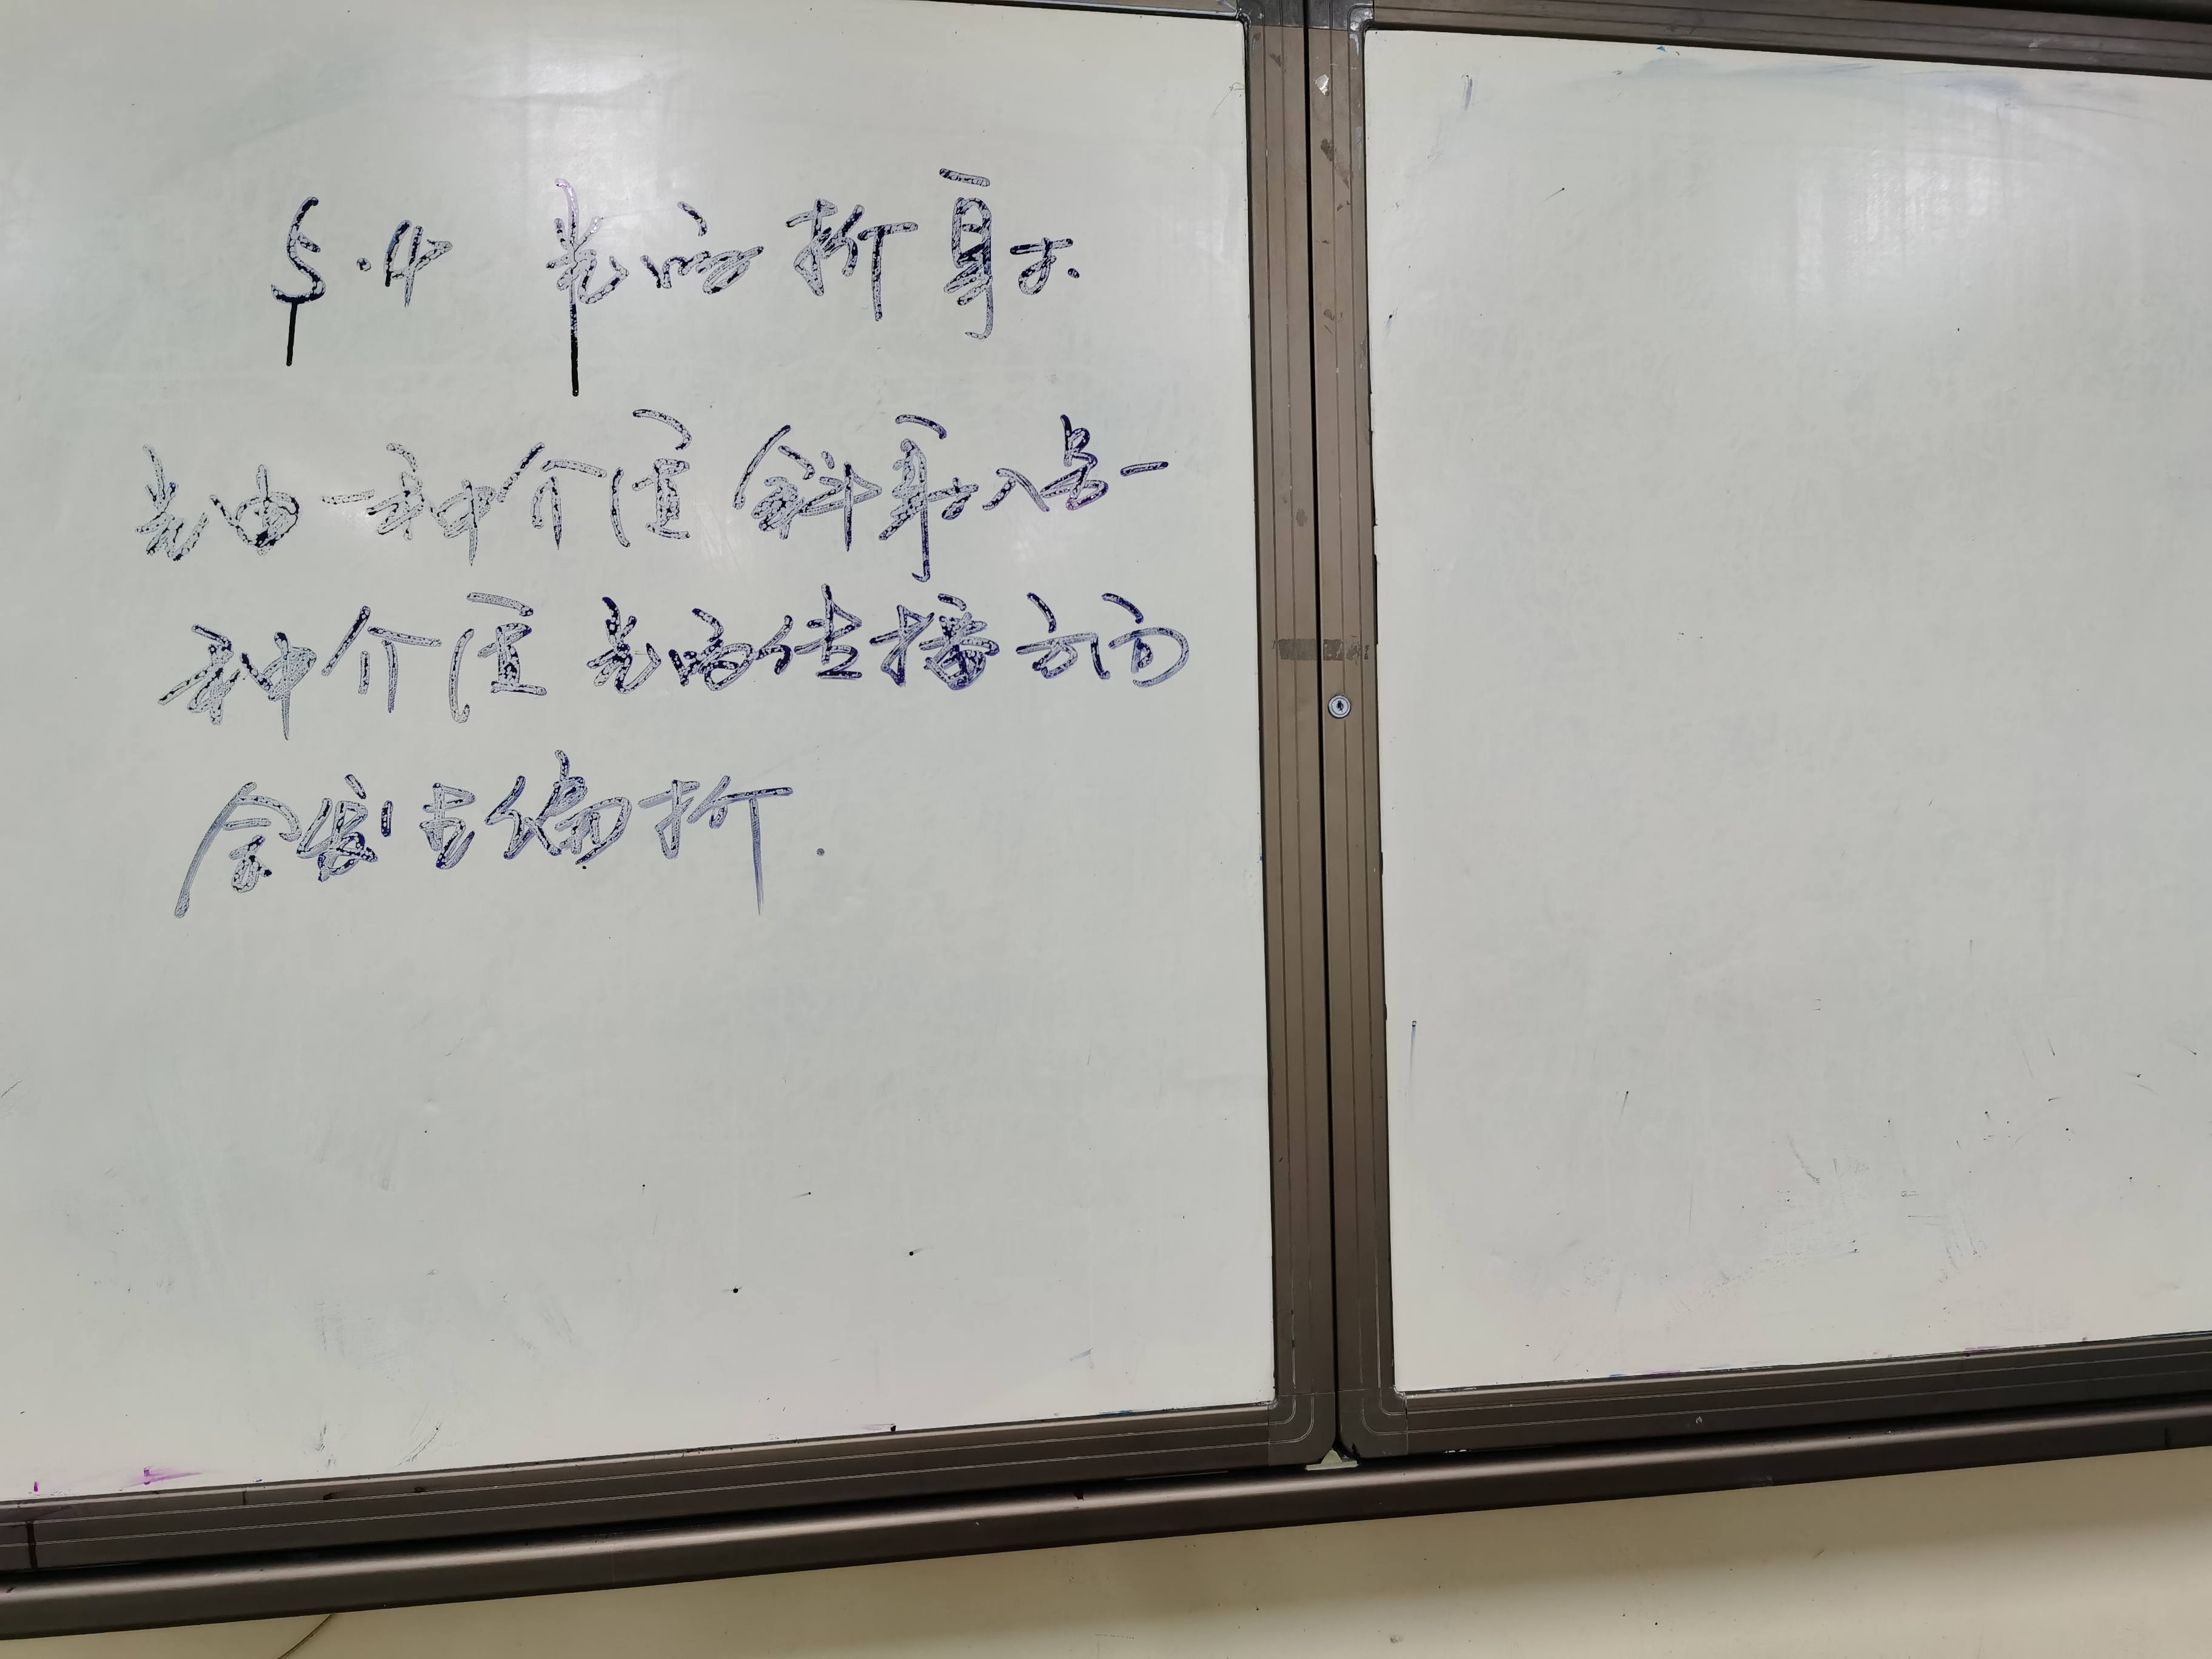 5.4 光的折射
光由一种介质斜射入另一
种介质光的传播方向
会发生偏折.